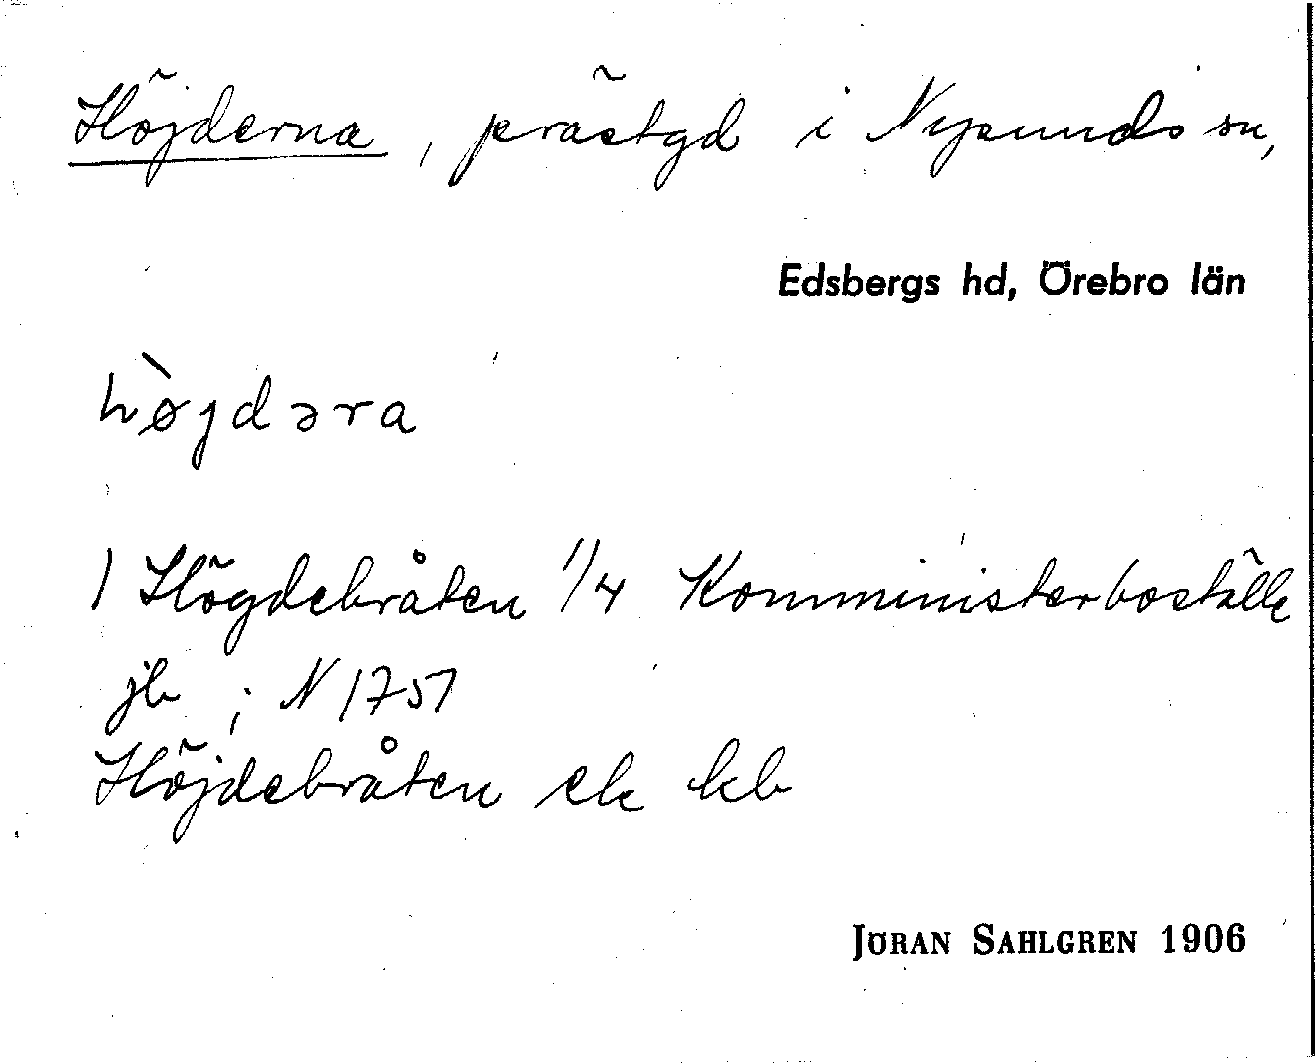 Höjderna, prästgd i Nysunds sn,
Edsbergs hd, Örebro län
hø̀jdəra
1 Högdebråten 1/4 Komministerboställe
jb ; N 1751
Höjdebråten ek kb
JÖRAN SAHLGREN 1906